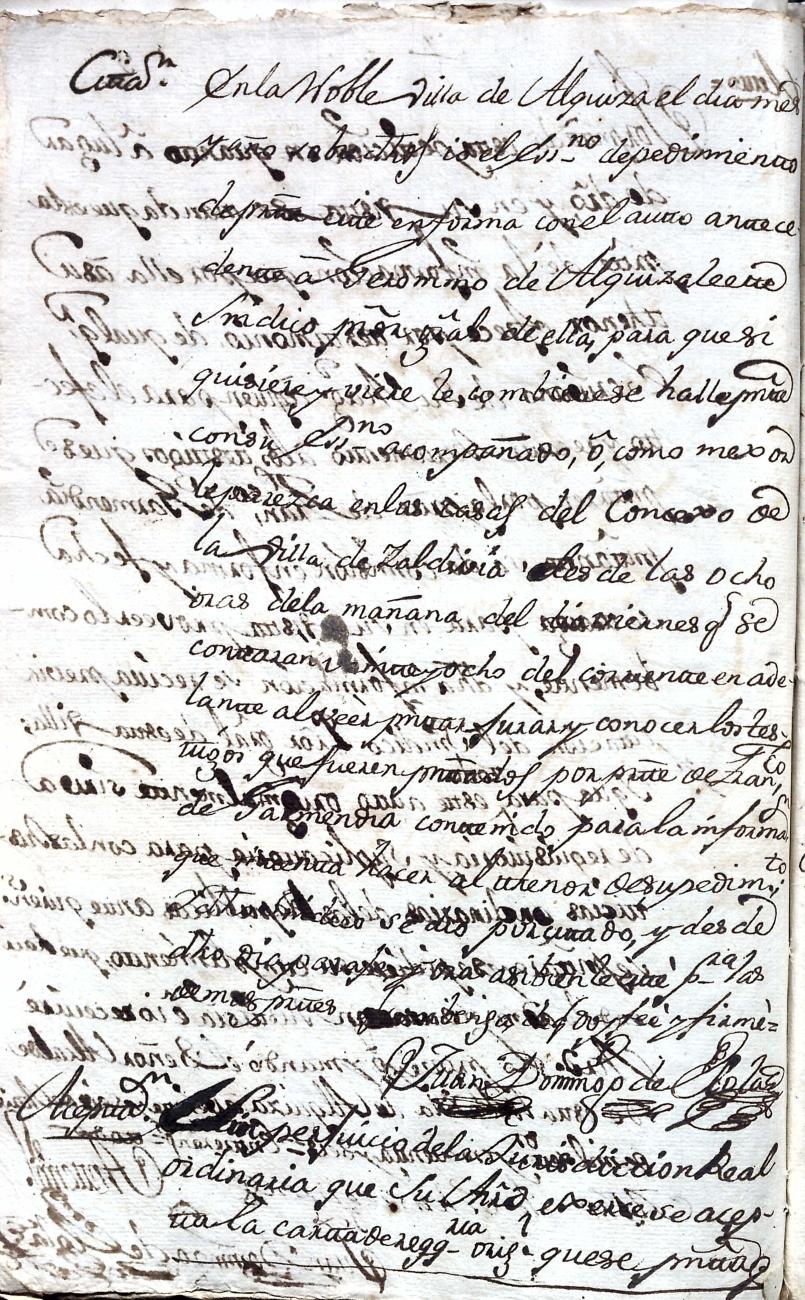 Citaón.
En la Noble villa de Alquiza el dia mes
y año el Ssno de pedimiento
de pte cite en forma con el auto antece
dente â Geronimo de Alquizalete
Sindico pror gral de ella, para que si
quisiere y viere le combiene se halle pnte
con su Ssno acompañado, ô, como mexor
le parezca en las casas del Concexo de
la Villa de Zaldivia desde las ocho
oras dela mañana del dia viernes q se
contaran veinte y ocho del corriente en ade-
lante al veer pntar jurar y conocer los tes-
tigos que fueren pntados por pte de Franco
de Garmendia contenido para la informaon
que intenta hacer al thenor de su pedimto
se dio por citado, y desde
dho dia para las
demas ptes doy feé y firmè=
Juan Domingo de
Azeptaon.
Sin perjuicio de la Jurisdiccion Real
ordinaria que Su Mrd, exerce se acep-
ta la carta de reqqria orig que se pnta